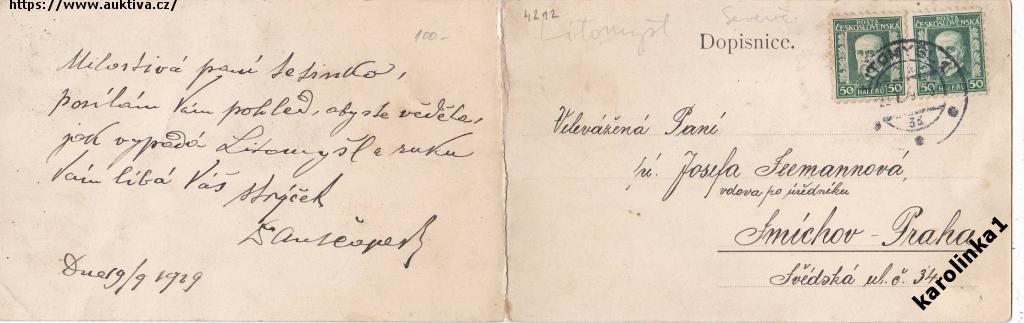 https://www.auktiva.cz/
100-
Milostivá paní sestinko,
posílám Vám pohled, abyste věděla,
jak vypadá Litomyšl a ruku
Vám líbá Váš
strýček
Dne 19/9 1929
4212
Litomyšl
Dopisnice.
POŠTA
ČESKOSLOVENSKÁ
50 HALÉŘŮ 50
POŠTA
ČESKOSLOVENSKÁ
50 HALÉŘŮ 50
Velevážená Paní
pí. Josefa Seemannová,
vdova po úředníku
Smíchov - Praha
Švédská ul. č. 34.
karolinka1